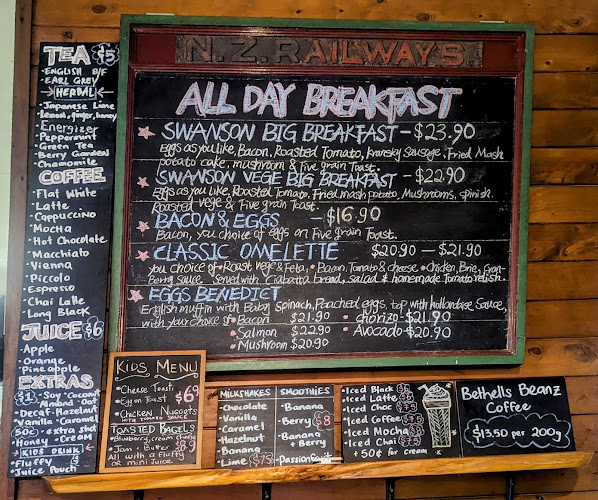 TEA $5
• ENGLISH B/F
• EARL GREY
→ HERBAL ←
• Japanese Lime
• Lemon, ginger, honey
Energizer
• Peppermint
• Green Tea
• Berry Garden
• Chamomile
COFFEE
• Flat White
• Latte
• Cappuccino
• Mocha
• Hot Chocolate
• Macchiato
• Vienna
• Piccolo
• Espresso
• Chai Latte
• Long Black
JUICE $6
• Apple
• Orange
• Pineapple
EXTRAS
Soy • Coconut
Almond • Oat
• Decaf • Hazelnut
Vanilla • Caramel
50c • extra shot
• Honey • Cream
→ KIDS DRINK ←
• Fluffy
• Juice Pouch
N.Z. RAILWAYS
ALL DAY BREAKFAST
SWANSON BIG BREAKFAST - $23.90
Eggs as you like, Bacon, Roasted Tomato, kransky Sausage, Fried Mash
potato cake, mushroom & Five grain Toast.
SWANSON VEGE BIG BREAKFAST - $22.90
Eggs as you like, Roasted Tomato, Fried mash potato, Mushrooms, spinish
Roasted vege & Five grain Toast.
BACON & EGGS - $16.90
Bacon, you choice of eggs on Five grain Toast.
CLASSIC OMELETTE $20.90 - $21.90
you choice of • Roast vege & Feta, • Bacon, Tomato & cheese • Chicken, Brie, Cran-
Berry sauce. Served with Ciabatta bread, salad & homemade Tomato relish.
EGGS BENEDICT
English muffin with Baby Spinach, Poached eggs, top with hollandise Sauce,
with your choice of • Bacon $21.90 • chorizo • $21.90
• Salmon $22.90 • Avocado • $20.90
• Mushroom $20.90
KIDS MENU
• Cheese Toast
• Egg on Toast $6.9
• CHICKEN NUGGETS
WITH TOMATO SAUCE
TOASTED BAGELS
• Blueberry, cream cheese
• Jam & Butter
All with a fluffy
or mini Juice
MILKSHAKES
• Chocolate
• Vanilla
• Caramel
• Hazelnut
• Banana
• Lime $7.5
SMOOTHIES
• Banana
• Berry $8
• Banana
+ Berry
• Passionfruit
• Iced Black $6
• Iced Latte $6
• Iced Choc $7.5
• Iced Coffee $7.5
• Iced Mocha $8
• Iced Chai $7.5
+ 50¢ for cream
Bethells Beanz
Coffee
$13.50 per 200g